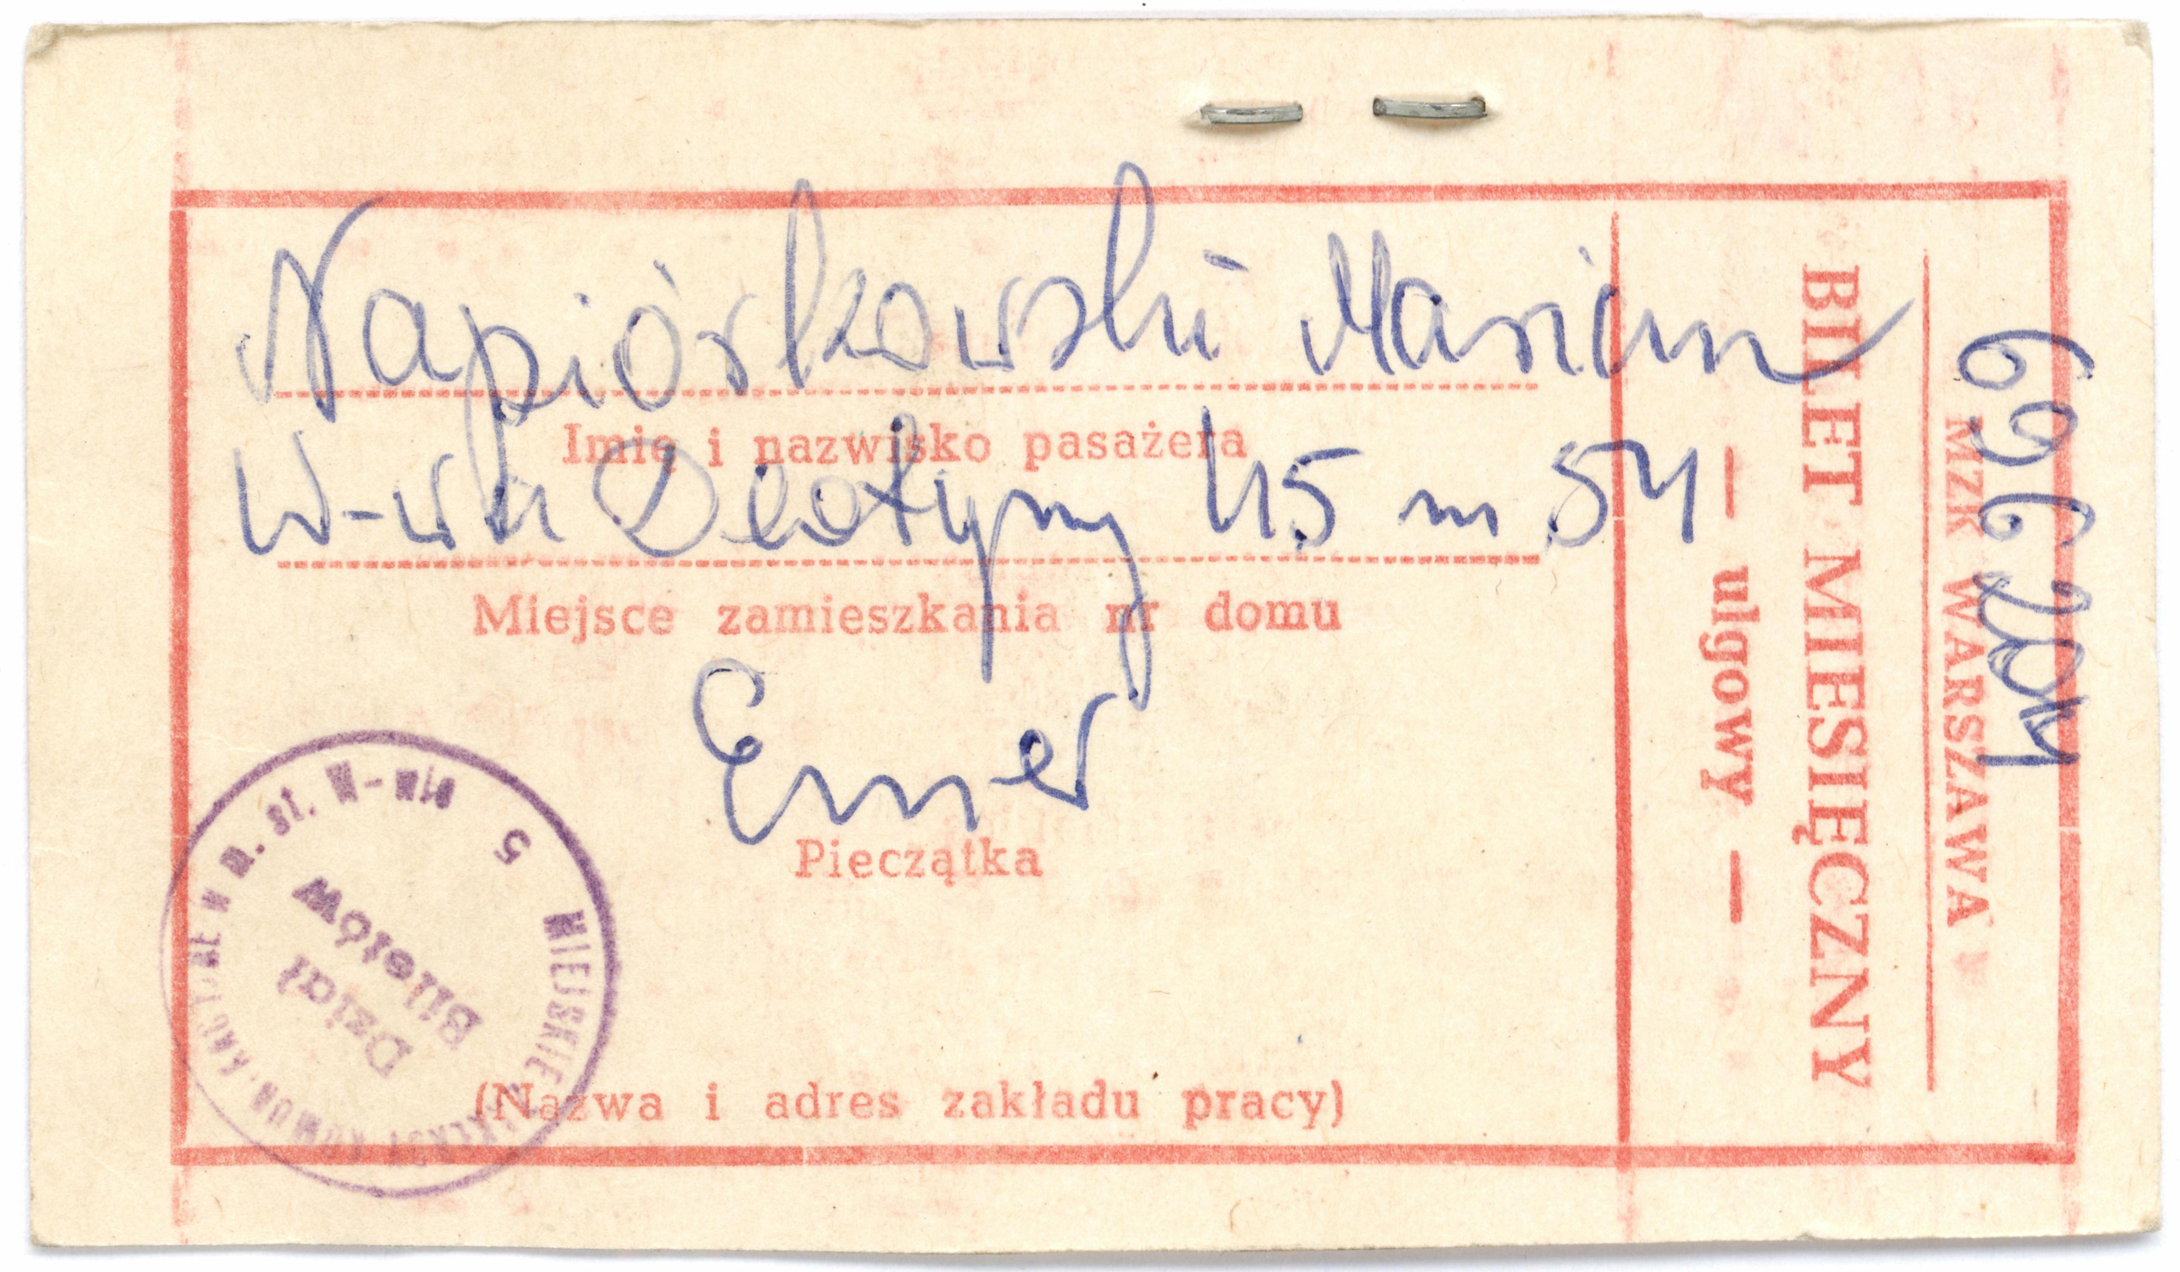 Napiórkowski Marian
Imię i nazwisko pasażera
W-wa Deotymy 45 m 54
Miejsce zamieszkania nr domu
Emer
Pieczątka
(Nazwa i adres zakładu pracy)
MZK WARSZAWA
BILET MIESIĘCZNY
— ulgowy —
MIEJSKIE w m. st. W-wie
5
Dział
Biletów